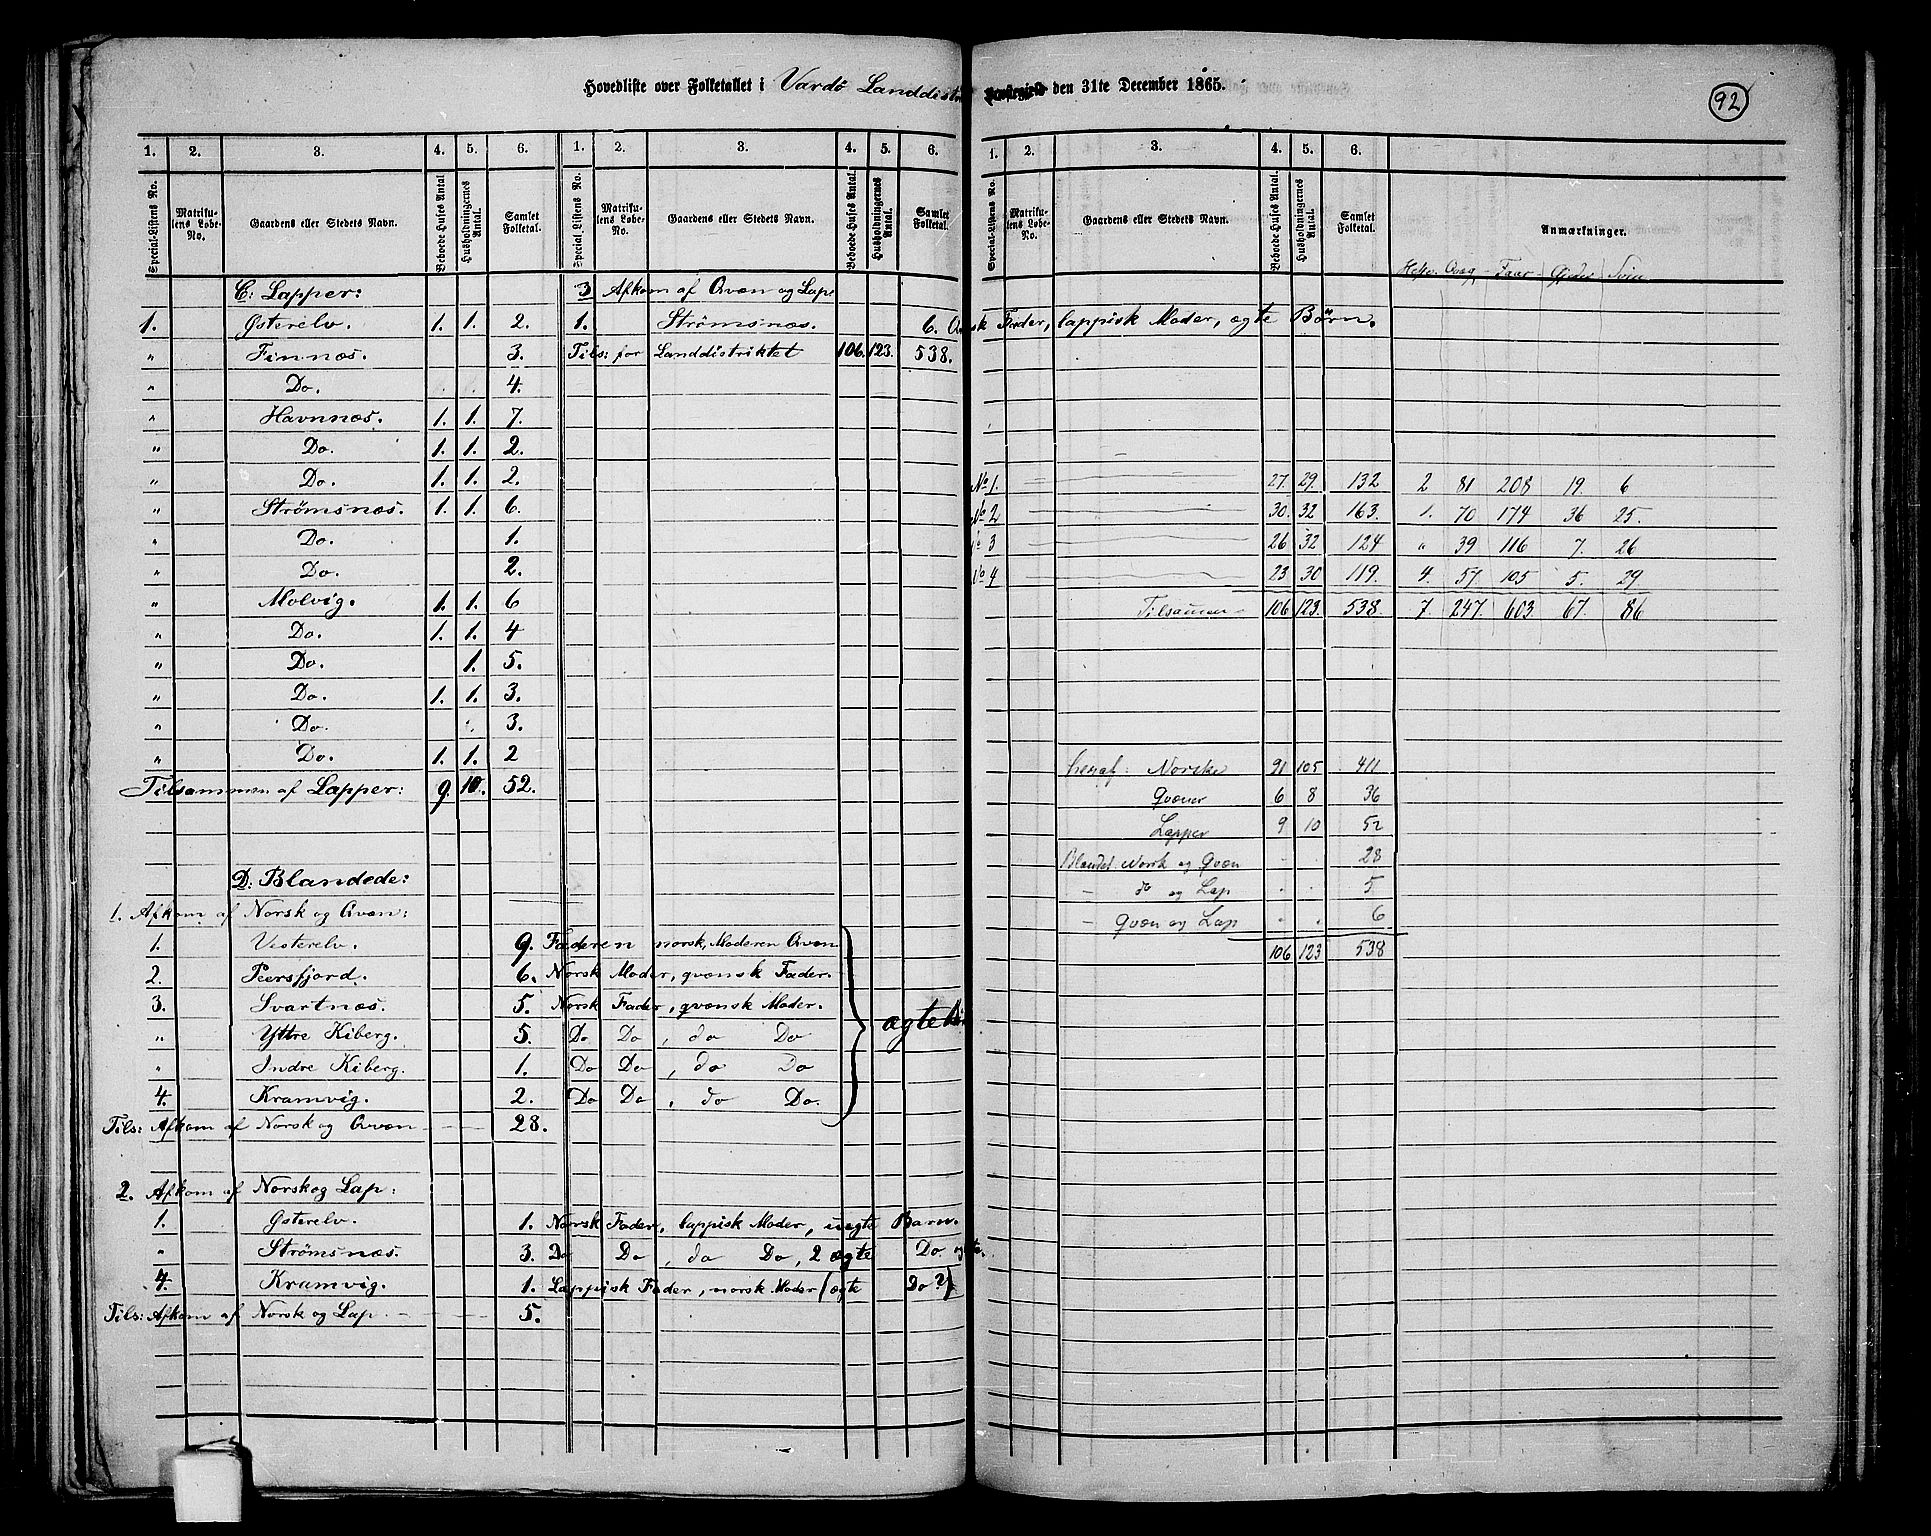 Hovedliste over Folketallet i Vardö Landdistr Præstegjeld den 31te December 1865.
92
1. 2. 3. 4. 5. 6. 1. 2. 3. 4. 5. 6.
Special-Listens No. Matrikulens Løbe-No. Gaardens eller Stedets Navn. Beboede Huses Antal Husholdningernes Antal. Samlet Folketal. Special-Listens No. Matrikulens Løbe-No. Gaardens eller Stedets Navn. Beboede Huses Antal. Husholdningernes Antal. Samlet Folketal.
C: Lapper: 3 Afkom af Qvæn og Lap
1. Østerelv. 1. 1. 2. 1. Strömsnæs. 6.
" Finnæs. 3. Tils: for Landdistriktet 106. 123. 538.
" Do. 4.
" Havnnæs. 1. 1. 7.
" Do. 1. 1. 2.
" Do. 1. 1. 2.
" Strömsnæs. 1. 1. 6.
" Do. 1.
" Do. 2.
" Molvig. 1. 1. 6
" Do. 1. 1. 4
" Do. 1. 5.
" Do. 1. 1. 3.
" Do. 3.
" Do. 1. 1. 2
Tilsammen af Lapper: 9. 10. 52.
D: Blandede:
1. Afkom af Norsk og Qvæn:
1. Vesterelv. 9. Faderen norsk, Moderen Qvæn
2. Peersfjord. 6. Norsk Moder, qvænsk Fader.
3. Svartnæs. 5. Norsk Fader, qvænsk Moder.
ægte
" Yttre Kiberg. 5. Do Do, do Do
" Indre Kiberg. 1. Do Do, do Do
4. Kramvig. 2. Do Do, do Do.
Tils: Afkom af Norsk og Qvæn 28.
2. Afkom af Norsk og Lap:
1. Østerelv. 1. Norsk Fader, lappisk Moder, uægte Barn.
" Strömsnæs. 3. Do Do, do Do, 2 ægte Do.
4. Kramvig. 1. Lappisk Fader, norsk Moder (ægte Do?)
Tils: Afkom af Norsk og Lap - 5.
1. 2. 3. 4. 5. 6.
Special-Listens No. Matrikulens Løbe-No. Gaardens eller Stedets Navn. Beboede Huses Antal. Husholdningernes Antal. Samlet Folketal. Anmærkninger.
Heste. Qvæg - Faar - Gjeder Sviin
Fader, lappisk Moder, ægte Börn.
No 1. 27. 29. 132 2 81 208 19. 6
No 2 30. 32 163. 1. 70 174 36 25.
No 3 26 32 124 " 39 116 7. 26
No 4 23 30 119. 4. 57 105 5. 29
Tilsammen 106 123. 538. 7. 247. 603. 67. 86
heraf: Norske 91 105 411
Qvæner 6 8 36
Lapper 9 10 52
Blandet Norsk og Qvæn - . 28
- do og Lap . . 5
- Qvæn og Lap " " 6
106 123 538